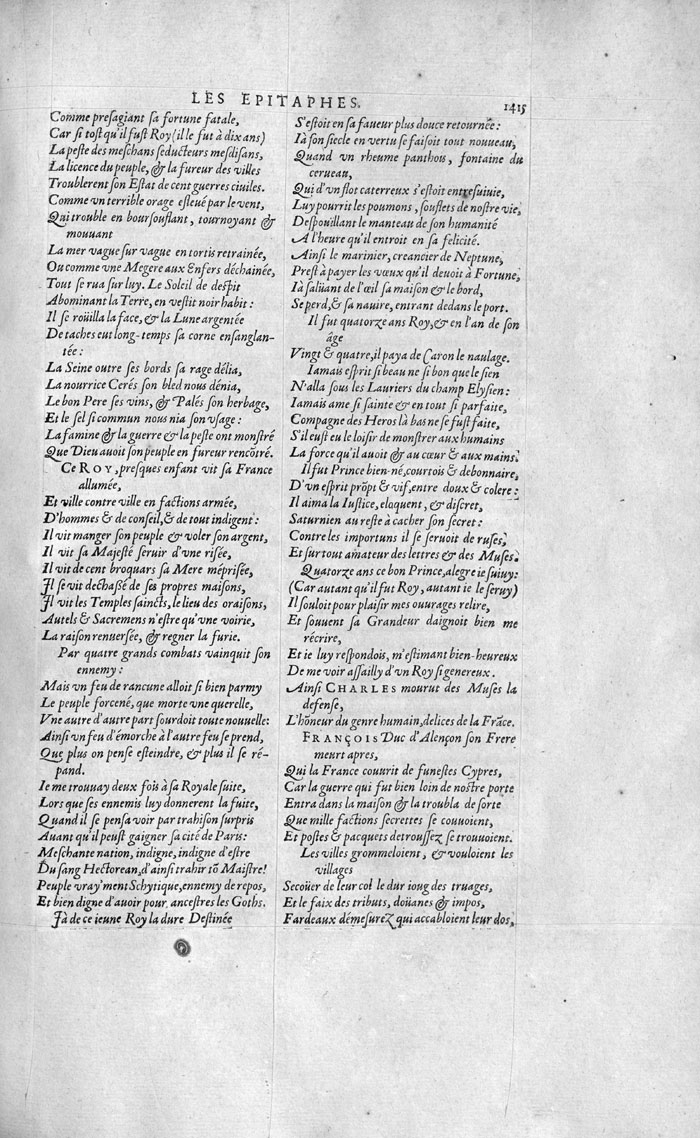 LES EPITAPHES. 1415
Comme presagiant sa fortune fatale,
Car si tost qu'il fust Roy (il le fut à dix ans)
La peste des meschans seducteurs mesdisans,
La licence du peuple, & la fureur des villes
Troublerent son Estat de cent guerres ciuiles.
Comme vn terrible orage esleué par le vent,
Qui trouble en boursouflant, tournoyant &
mouuant
La mer vague sur vague en tortis retrainée,
Ou comme vne Megere aux Enfers déchainée,
Tout se rua sur luy. Le Soleil de despit
Abominant la Terre, en vestit noir habit :
Il se roüilla la face, & la Lune argentée
De taches eut long-temps sa corne ensanglan-
tée :
La Seine outre ses bords sa rage délia,
La nourrice Cerés son bled nous dénia,
Le bon Pere ses vins, & Palés son herbage,
Et le sel si commun nous nia son vsage :
La famine & la guerre & la peste ont monstré
Que Dieu auoit son peuple en fureur rencõtré.
Ce ROY, presques enfant vit sa France
allumée,
Et ville contre ville en factions armée,
D'hommes & de conseil, & de tout indigent :
Il vit manger son peuple & voler son argent,
Il vit sa Majesté seruir d'vne risée,
Il vit de cent broquars sa Mere méprisée,
Il se vit dechassé de ses propres maisons,
Il vit les Temples saincts, le lieu des oraisons,
Autels & Sacremens n'estre qu'vne voirie,
La raison renuersée, & regner la furie.
Par quatre grands combats vainquit son
ennemy :
Mais vn feu de rancune alloit si bien parmy
Le peuple forcené, que morte vne querelle,
Vne autre d'autre part sourdoit toute nouuelle:
Ainsi vn feu d'émorche à l'autre feu se prend,
Que plus on pense esteindre, & plus il se ré-
pand.
Ie me trouuay deux fois à sa Royale suite,
Lors que ses ennemis luy donnerent la fuite,
Quand il se pensa voir par trahison surpris
Auant qu'il peust gaigner sa cité de Paris :
Meschante nation, indigne, indigne d'estre
Du sang Hectorean, d'ainsi trahir tõ Maistre!
Peuple vray'ment Schytique, ennemy de repos,
Et bien digne d'auoir pour ancestres les Goths.
Jà de ce ieune Roy la dure Destinée
S'estoit en sa faueur plus douce retournée :
Ià son siecle en vertu se faisoit tout nouueau,
Quand vn rheume panthois, fontaine du
cerueau,
Qui d'vn flot caterreux s'estoit entresuiuie,
Luy pourrit les poumons, souflets de nostre vie,
Despouillant le manteau de son humanité
A l'heure qu'il entroit en sa felicité.
Ainsi le marinier, creancier de Neptune,
Prest à payer les vœux qu'il deuoit à Fortune,
Ià salüant de l'œil sa maison & le bord,
Se perd, & sa nauire, entrant dedans le port.
Il fut quatorze ans Roy, & en l'an de son
âge
Vingt & quatre, il paya de Caron le naulage.
Iamais esprit si beau ne si bon que le sien
N'alla sous les Lauriers du champ Elysien :
Iamais ame si sainte & en tout si parfaite,
Compagne des Heros là bas ne se fust faite,
S'il eust eu le loisir de monstrer aux humains
La force qu'il auoit & au cœur & aux mains.
Il fut Prince bien-né, courtois & debonnaire,
D'vn esprit prõpt & vif, entre doux & colere :
Il aima la Iustice, eloquent, & discret,
Saturnien au reste à cacher son secret :
Contre les importuns il se seruoit de ruses,
Et sur tout amateur des lettres & des Muses.
Quatorze ans ce bon Prince, alegre ie suiuy:
(Car autant qu'il fut Roy, autant ie le seruy)
Il souloit pour plaisir mes ouurages relire,
Et souuent sa Grandeur daignoit bien me
récrire,
Et ie luy respondois, m'estimant bien-heureux
De me voir assailly d'vn Roy si genereux.
Ainsi CHARLES mourut des Muses la
defense,
L'hõneur du genre humain, delices de la Frãce.
FRANÇOIS Duc d'Alençon son Frere
meurt apres,
Qui la France couurit de funestes Cypres,
Car la guerre qui fut bien loin de nostre porte
Entra dans la maison & la troubla de sorte
Que mille factions secrettes se couuoient,
Et postes & pacquets detroussez se trouuoient.
Les villes grommeloient, & vouloient les
villages
Secoüer de leur col le dur ioug des truages,
Et le faix des tributs, doüanes & impos,
Fardeaux démesurez qui accabloient leur dos,